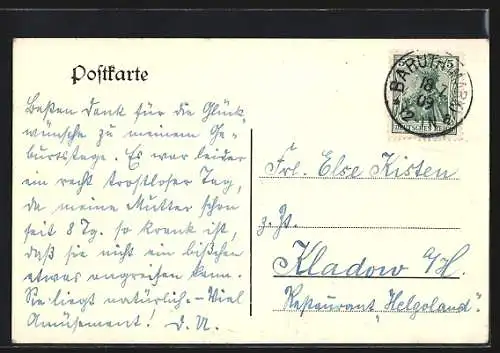 Postkarte
BARUTH (MARK)
18.7.
09
DEUTSCHES REICH
Besten Dank für die Glück-
wünsche zu meinem Ge-
burtstage. Es war leider
ein recht trostloser Tag,
da meine Mutter schon
seit 8 Tg. so krank ist,
daß sie nicht ein bißchen
etwas angreifen kann.
Sie liegt natürlich. – Viel
Amüsement! D. U.
Frl. Else Kisten
z. Zt.
Kladow a/H.
Restaurant „Helgoland".